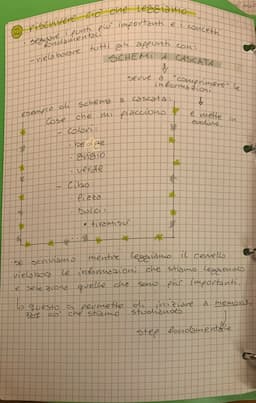 riscrivere ciò che leggiamo
segnare i punti più importanti e i concetti
fondamentali
- rielaborare tutti gli appunti con:
SCHEMI A CASCATA
serve a "comprimere" le
informazioni
esempio di schema a cascata:
Cose che mi piacciono
e mette in
- Colori
· beige
· grigio
· verde
- Cibo
Pizza
Dolci:
• tiramisù
se scriviamo mentre leggiamo il cervello
rielabora le informazioni che stiamo leggendo
e seleziona quelle che sono più importanti.
questo ci permette di iniziare a memoriz
zare ciò che stiamo studiando
step fondamentale